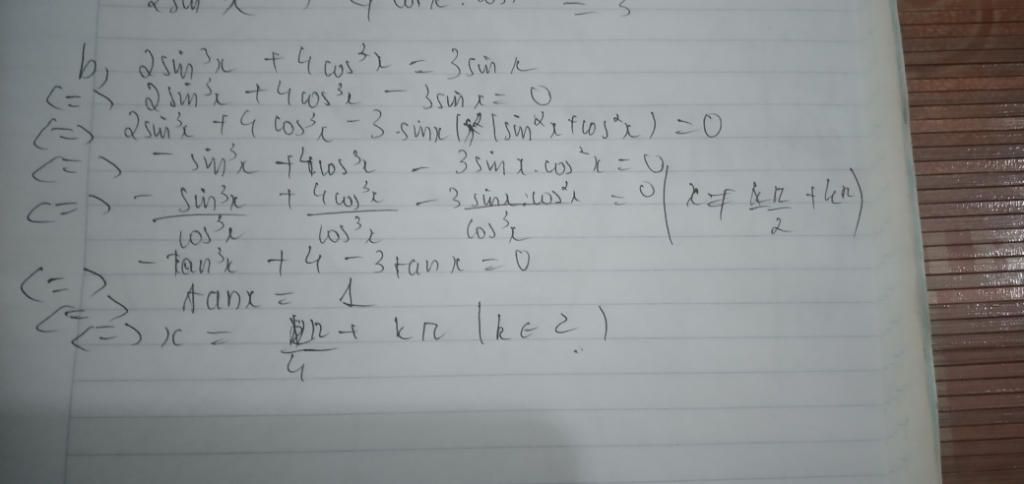 b, 2sin³x + 4cos³x = 3sinx
<=> 2sin³x + 4cos³x - 3sinx = 0
<=> 2sin³x + 4cos³x - 3 sinx (sin²x + cos²x) = 0
<=> - sin³x + 4cos³x - 3sinx.cos²x = 0
<=> - sin³x/cos³x + 4cos³x/cos³x - 3sinx.cos²x/cos³x = 0 (x ≠ π/2 + kπ)
- tan³x + 4 - 3tanx = 0
<=> tanx = 1
<=> <=> x = π/4 + kπ (k ∈ Z)